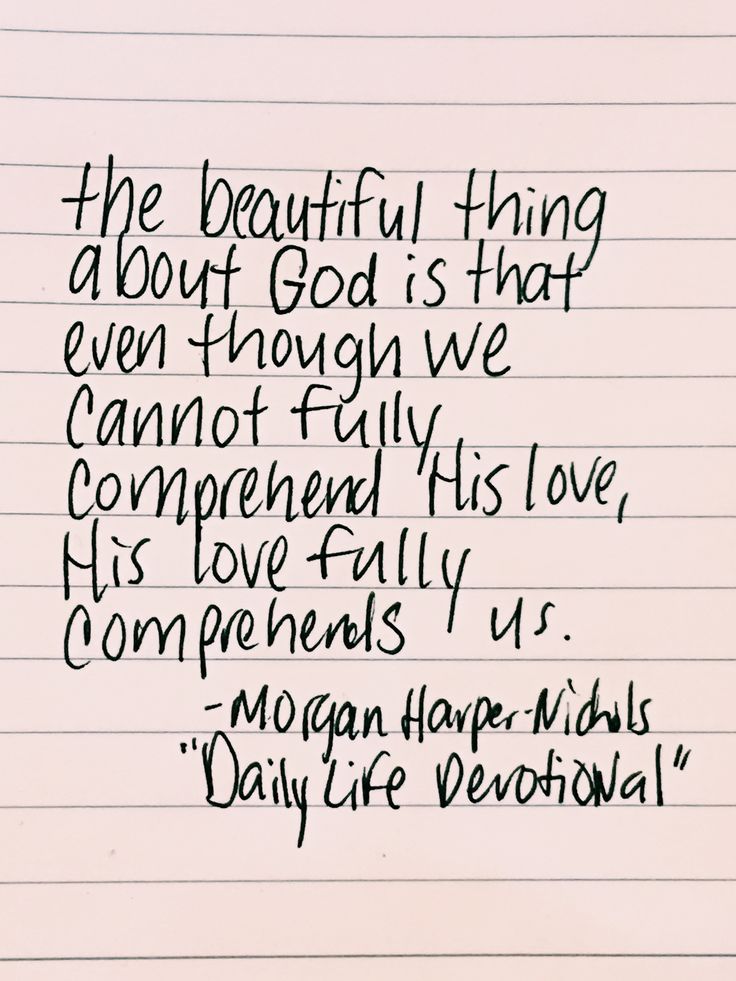 the beautiful thing
about God is that
even though we
cannot fully
comprehend His love,
His love fully
comprehends us.
-Morgan Harper-Nichols
"Daily Life Devotional"